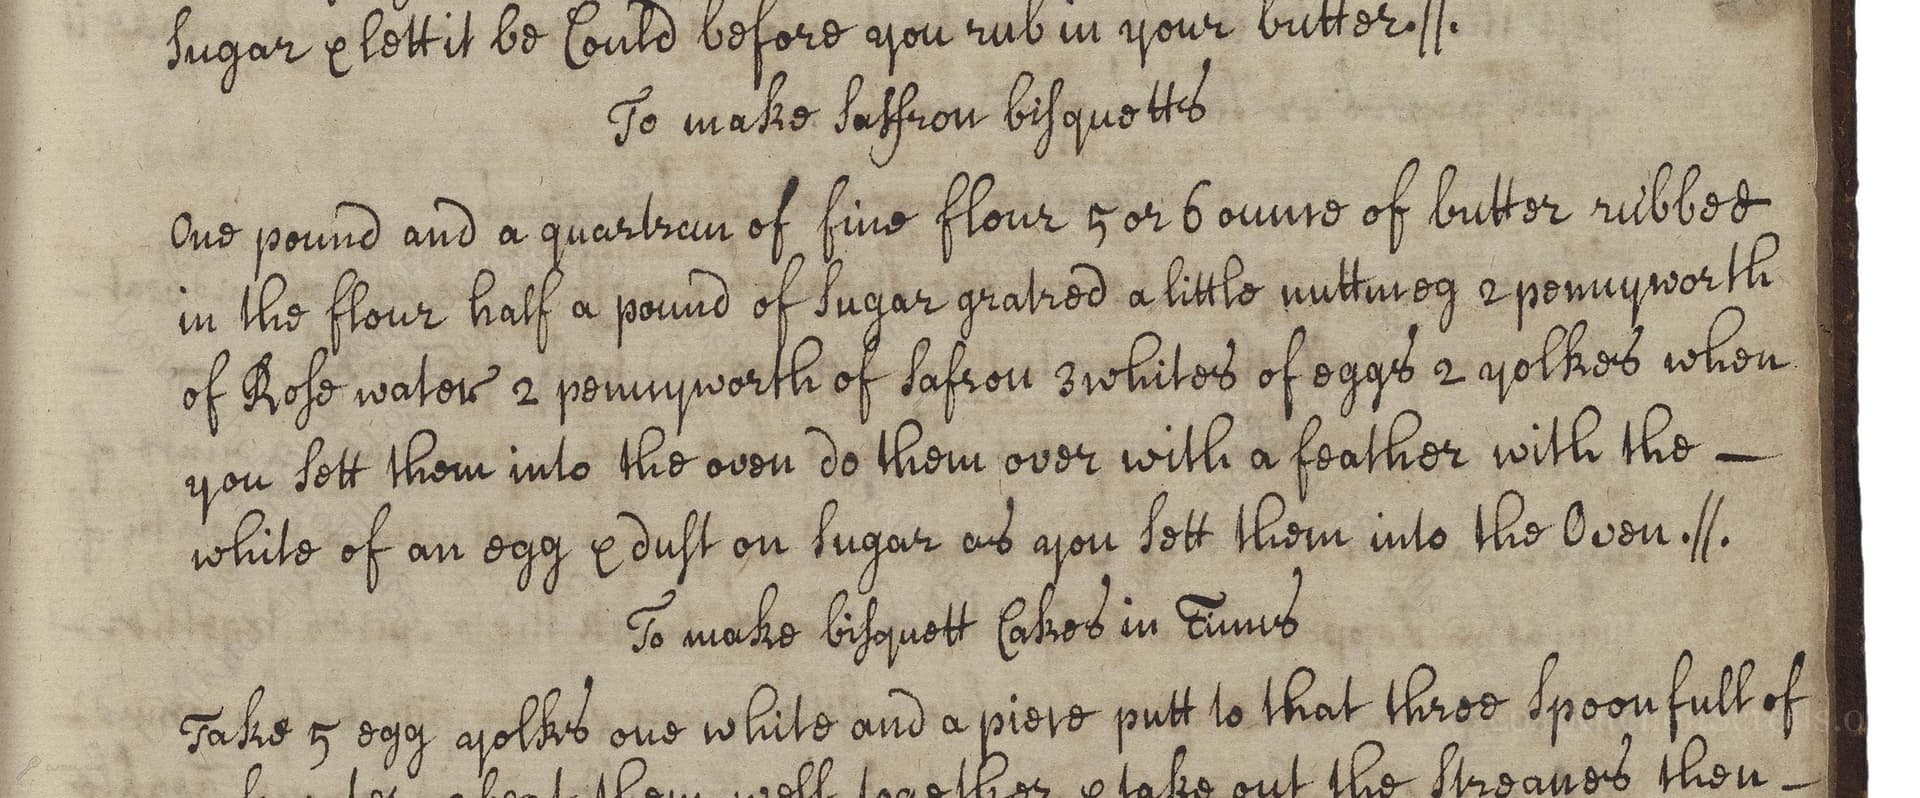 Sugar & lett it be Could before you rub in your butter.//.
To make Saffron bisquetts
One pound and a quartran of fine flour 5 or 6 ounce of butter rubbed
in the flour half a pound of Sugar grated a little nuttmeg 2 pennyworth
of Rose water 2 pennyworth of Safron 3 whites of eggs 2 yolkes when
you Sett them into the oven do them over with a feather with the —
white of an egg & dust on Sugar as you Sett them into the Oven.//.
To make bisquett Cakes in Tinns
Take 5 egg yolks one white and a piece putt to that three Spoonfull of
beat them well together & take out the Streanes then —